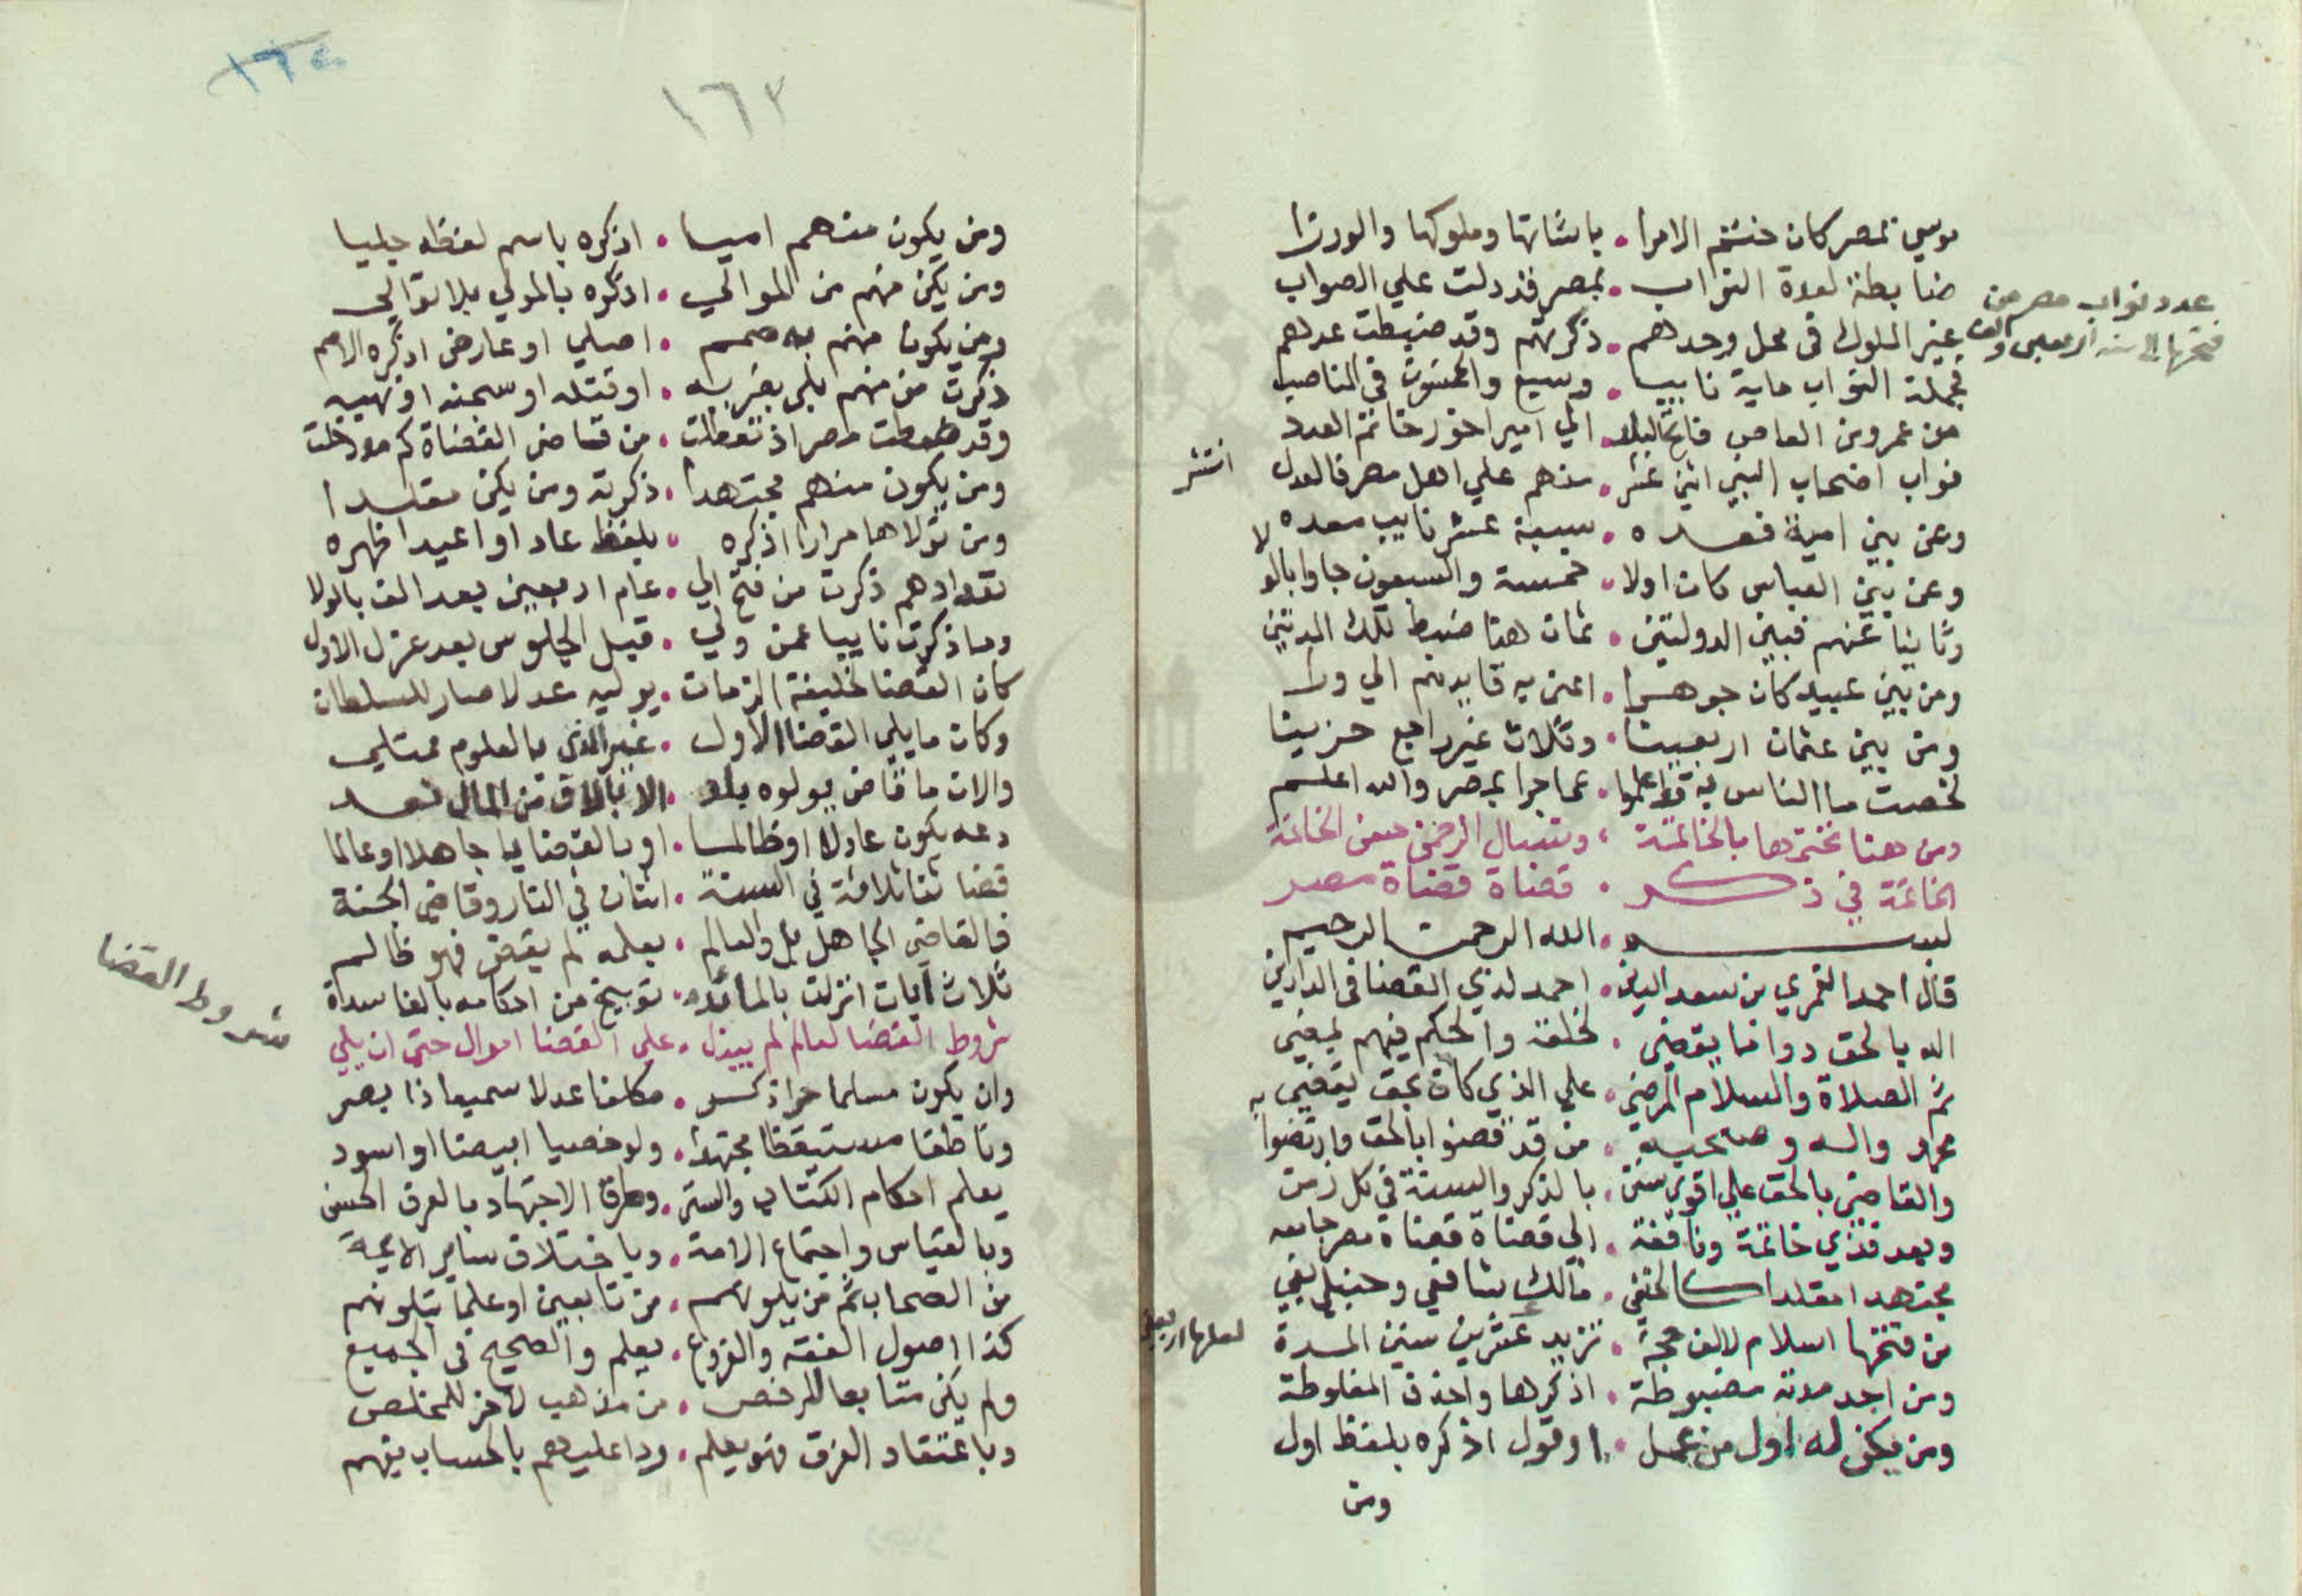 موسي بمصر كان ختم الامرا . باشاتها وملوكها والوزرا
ضابطة لعدة النواب . بمصر قد دلت علي الصواب
عدد نواب مصر من
فتحها الى سنة اربعين والف
غير الملوك فى محل وحدهم . ذكرتهم وقد ضبطت عدهم
فجملة النواب ماية نايبا . وسبع والخمسون فى المناصبا
من عمرو بن العاص فاتح البلد . الي امير اخور خاتم العدد
نواب اصحاب النبي اثني عشر . منهم علي اهل مصر فالعدل اشتهر
وعن بني امية فعده . سبعة عشر نايب معده
وعن بني العباس كان اولا . خمسة والسبعون جاوا بالولا
وثانيا عنهم فبين الدولتين . ثمان هنا ضبط تلك المدتين
ومن بني عبيد كان جوهرا . اعني به قايدهم الي ورا
ومن بني عثمان اربعينا . وثلاث غير راجع حزينا
لخصت ما الناس به قد اعلموا . عما جرا بمصر والله اعلم
ومن هنا نختمها بالخاتمة . ونسال الرحمن حسن الخاتمة
الخاتمة في ذكر . قضاة قضاة مصر
بسم . الله الرحمن الرحيم
قال احمد القمري بن سعد الدين . احمد لذي القضا فى الدارين
الله بالحق دواما يقضي . لخلقه والحكم فيهم يمضي
ثم الصلاة والسلام المرضي . علي الذي كان بحق يقضي به
محمد واله وصحبه . من قد قضوا بالحق وارتضوا
والقاضي بالحق علي اقوي سنن . بالذكر والسنة في كل زمن
وبعد فذي خاتمة ونافعة . الي قضاة قضاة مصر جامعه
مجتهدا مقلدا كالحنفي . مالك شافعي وحنبلي يفي
من فتحها اسلام لالف حجة . تزيد عشرين سنين المدة
لعلها اربعين
ومن اجد مدته مضبوطة . اذكرها واحذف المغلوطة
ومن يكن له اول من عمل . او قول اذكره بلفظ اول
ومن
١٦٣
١٦٤
ومن يكون منهم اميا . اذكره باسم لفظه جليا
ومن يكن منهم من الموالي . اذكره بالمولي بلا توالي
ومن يكون منهم به صمم . اصلي او عارض اذكره الاصم
ذكرت من منهم بلي بضربه . او قتله او سجنه او نهبه
وقد ضبطت مصر اذ تعطلت . من قاضي القضاة كم مدة خلت
ومن يكون منهم مجتهدا . ذكرته ومن يكن مقلدا
ومن تولاها مرارا اذكره . بلفظ عاد او اعيد اظهره
تعدادهم ذكرت من فتح الي . عام اربعين بعد الف بالولا
وما ذكرت نايبا عمن ولي . قبل الجلوس بعد عزل الاول
كان القضا لخليفة الزمان . يوليه عدلا صار للسلطان
وكان ما يلي القضا الاول . غير الذي بالعلوم ممتلي
والان ما قاض يولوه بلد . الا بالاف من المال تعد
دعه يكون عادلا او ظالما . او بالقضايا جاهلا او عالما
قضاتنا ثلاثة في السنة . اثنان في النار وقاضي الجنة
فالقاضي الجاهل بل والعالم . بعلمه لم يقض فهو ظالم
ثلاث ايات انزلت بالمائده . توبيخ من احكامه بالفاسدة
شروط القضا
شروط القضا لعالم لم يبذل . علي القضا اموال حتى ان يلي
وان يكون مسلما حرا ذكر . مكلفا عدلا سميعا ذا بصر
وناطقا مستيقظا مجتهدا . ولو خصيا ابيضا او اسود
يعلم احكام الكتاب والسنن . وطرق الاجتهاد بالعرف الحسن
وبالقياس واجماع الامة . وباختلاف ساير الايمة
من الصحاب ثم من يلوهم . من تابعين او علما يتلونهم
كذا اصول الفقه والفروع . يعلم والصحيح فى الجميع
ولم يكن متابعا للرخص . من مذهب لاخر للمخلص
وباعتقاد الفرق فهو يعلم . ردا عليهم بالحساب يفهم